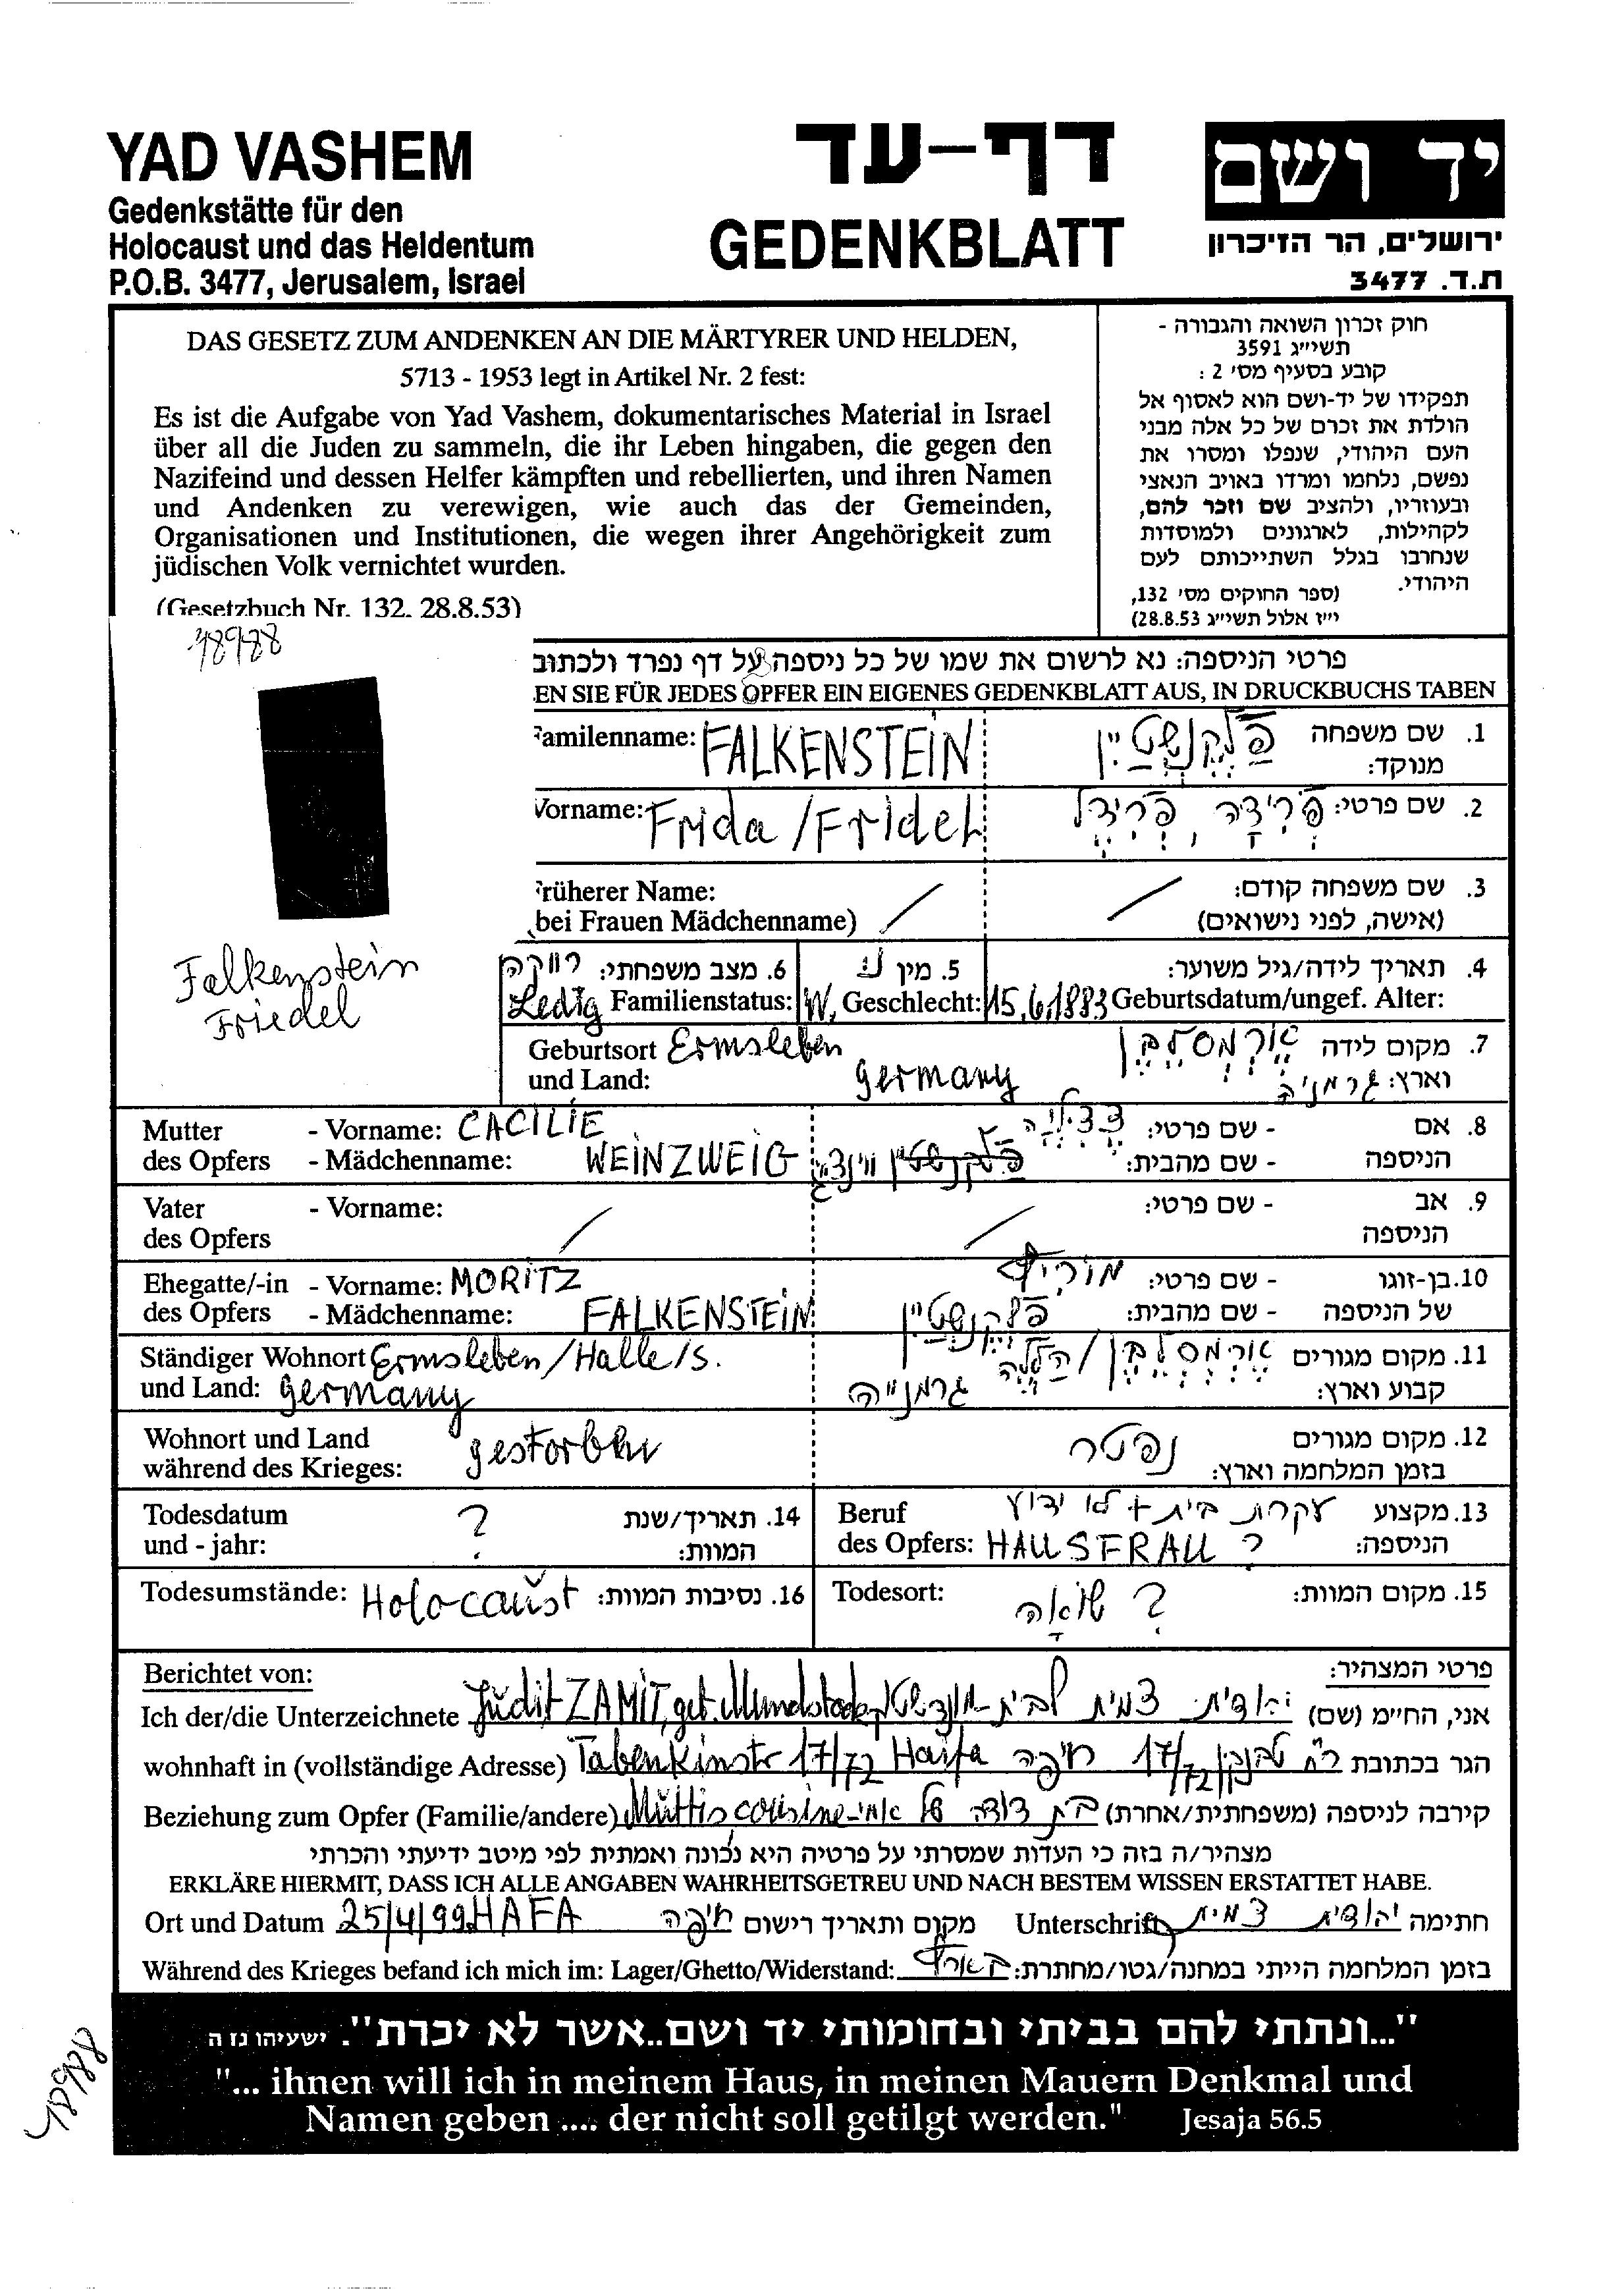 YAD VASHEM
Gedenkstätte für den
Holocaust und das Heldentum
P.O.B. 3477, Jerusalem, Israel
דף-עד
GEDENKBLATT
יד ושם
ירושלים, הר הזיכרון
ת.ד. 3477
DAS GESETZ ZUM ANDENKEN AN DIE MÄRTYRER UND HELDEN,
5713 - 1953 legt in Artikel Nr. 2 fest:
Es ist die Aufgabe von Yad Vashem, dokumentarisches Material in Israel
über all die Juden zu sammeln, die ihr Leben hingaben, die gegen den
Nazifeind und dessen Helfer kämpften und rebellierten, und ihren Namen
und Andenken zu verewigen, wie auch das der Gemeinden,
Organisationen und Institutionen, die wegen ihrer Angehörigkeit zum
jüdischen Volk vernichtet wurden.
(Gesetzbuch Nr. 132, 28.8.53)
חוק זכרון השואה והגבורה -
תשי״ג 3591
קובע בסעיף מס׳ 2 :
תפקידו של יד-ושם הוא לאסוף אל
הולדת את זכרם של כל אלה מבני
העם היהודי, שנפלו ומסרו את
נפשם, נלחמו ומרדו באויב הנאצי
ובעוזריו, ולהציב שם וזכר להם,
לקהילות, לארגונים ולמוסדות
שנחרבו בגלל השתייכותם לעם
היהודי.
(ספר החוקים מס׳ 132,
י״ז אלול תשי״ג 28.8.53)
48988
פרטי הניספה: נא לרשום את שמו של כל ניספה על דף נפרד ולכתוב
EN SIE FÜR JEDES OPFER EIN EIGENES GEDENKBLATT AUS, IN DRUCKBUCHS TABEN
Familenname: FALKENSTEIN
פלקנשטיין
1. שם משפחה
מנוקד:
Vorname: Frida / Fridel
2. שם פרטי: פרידה, פרידל
Früherer Name:
(bei Frauen Mädchenname)
3. שם משפחה קודם:
(אישה, לפני נישואים)
Falkenstein
Friedel
6. מצב משפחתי: רווקה
Ledig Familienstatus:
5. מין נ
W, Geschlecht:
4. תאריך לידה/גיל משוער:
15.6.1883 Geburtsdatum/ungef. Alter:
Geburtsort Ermsleben
und Land: germany
7. מקום לידה ארמסלבן
וארץ: גרמניה
Mutter - Vorname: CACILIE
des Opfers - Mädchenname: WEINZWEIG
8. אם - שם פרטי: צציליה
הניספה - שם מהבית:
Vater - Vorname:
des Opfers
9. אב - שם פרטי:
הניספה
Ehegatte/-in - Vorname: MORITZ
des Opfers - Mädchenname: FALKENSTEIN
10. בן-זוגו - שם פרטי: מוריץ
של הניספה - שם מהבית: פלקנשטיין
Ständiger Wohnort Ermsleben/Halle/s.
und Land: germany
11. מקום מגורים ארמסלבן / הלה
קבוע וארץ: גרמנייה
Wohnort und Land
während des Krieges: gestorben
12. מקום מגורים נפטר
בזמן המלחמה וארץ:
Todesdatum
und - jahr: ?
14. תאריך/שנת
המוות:
Beruf
des Opfers: HAUSFRAU ?
13. מקצוע עקרת בית + לא ידוע
הניספה:
Todesumstände: Holocaust
16. נסיבות המוות:
Todesort:
15. מקום המוות: ? שואה
Berichtet von:
פרטי המצהיר:
Ich der/die Unterzeichnete Judit ZAMIT, geb. Mundstock
אני, החי״מ (שם) יהודית צמית לבית מונדשטוק
wohnhaft in (vollständige Adresse) Tabenkinstr 17/72 Haifa
הגר בכתובת רח׳ טבנקין 17/72 חיפה
Beziehung zum Opfer (Familie/andere) Muttis cousine
קירבה לניספה (משפחתית/אחרת) בת דודה של אמי
מצהיר/ה בזה כי העדות שמסרתי על פרטיה היא נכונה ואמתית לפי מיטב ידיעתי והכרתי
ERKLÄRE HIERMIT, DASS ICH ALLE ANGABEN WAHRHEITSGETREU UND NACH BESTEM WISSEN ERSTATTET HABE.
Ort und Datum 25/4/99 HAFA
מקום ותאריך רישום חיפה
Unterschrift
חתימה יהודית צמית
Während des Krieges befand ich mich im: Lager/Ghetto/Widerstand:
בזמן המלחמה הייתי במחנה/גטו/מחתרת: בארץ
"...ונתתי להם בביתי ובחומותי יד ושם..אשר לא יכרת". ישעיהו נז ה
"... ihnen will ich in meinem Haus, in meinen Mauern Denkmal und
Namen geben .... der nicht soll getilgt werden." Jesaja 56.5
48988